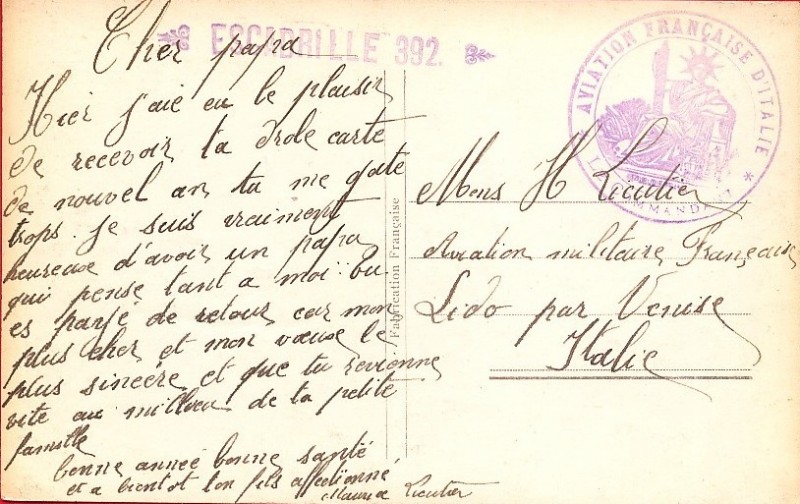 ESCADRILLE 392.
AVIATION FRANÇAISE D'ITALIE
LE COMMANDANT
Cher papa
Hier j'aie eu le plaisir
de recevoir ta drole carte
de nouvel an tu me gate
trops. Je suis vraiment
heureuse d'avoir un papa
qui pense tant a moi. tu
es parfé de retour car mon
plus cher et mon voeuse le
plus sincère et que tu revionne
vite au millieu de ta petite
famille
bonne année bonne santé
et a bientot ton fils affectionné
Licutier
Fabrication Française
Mons H Licutier
Aviation militaire Française
Lido par Venise
Italie